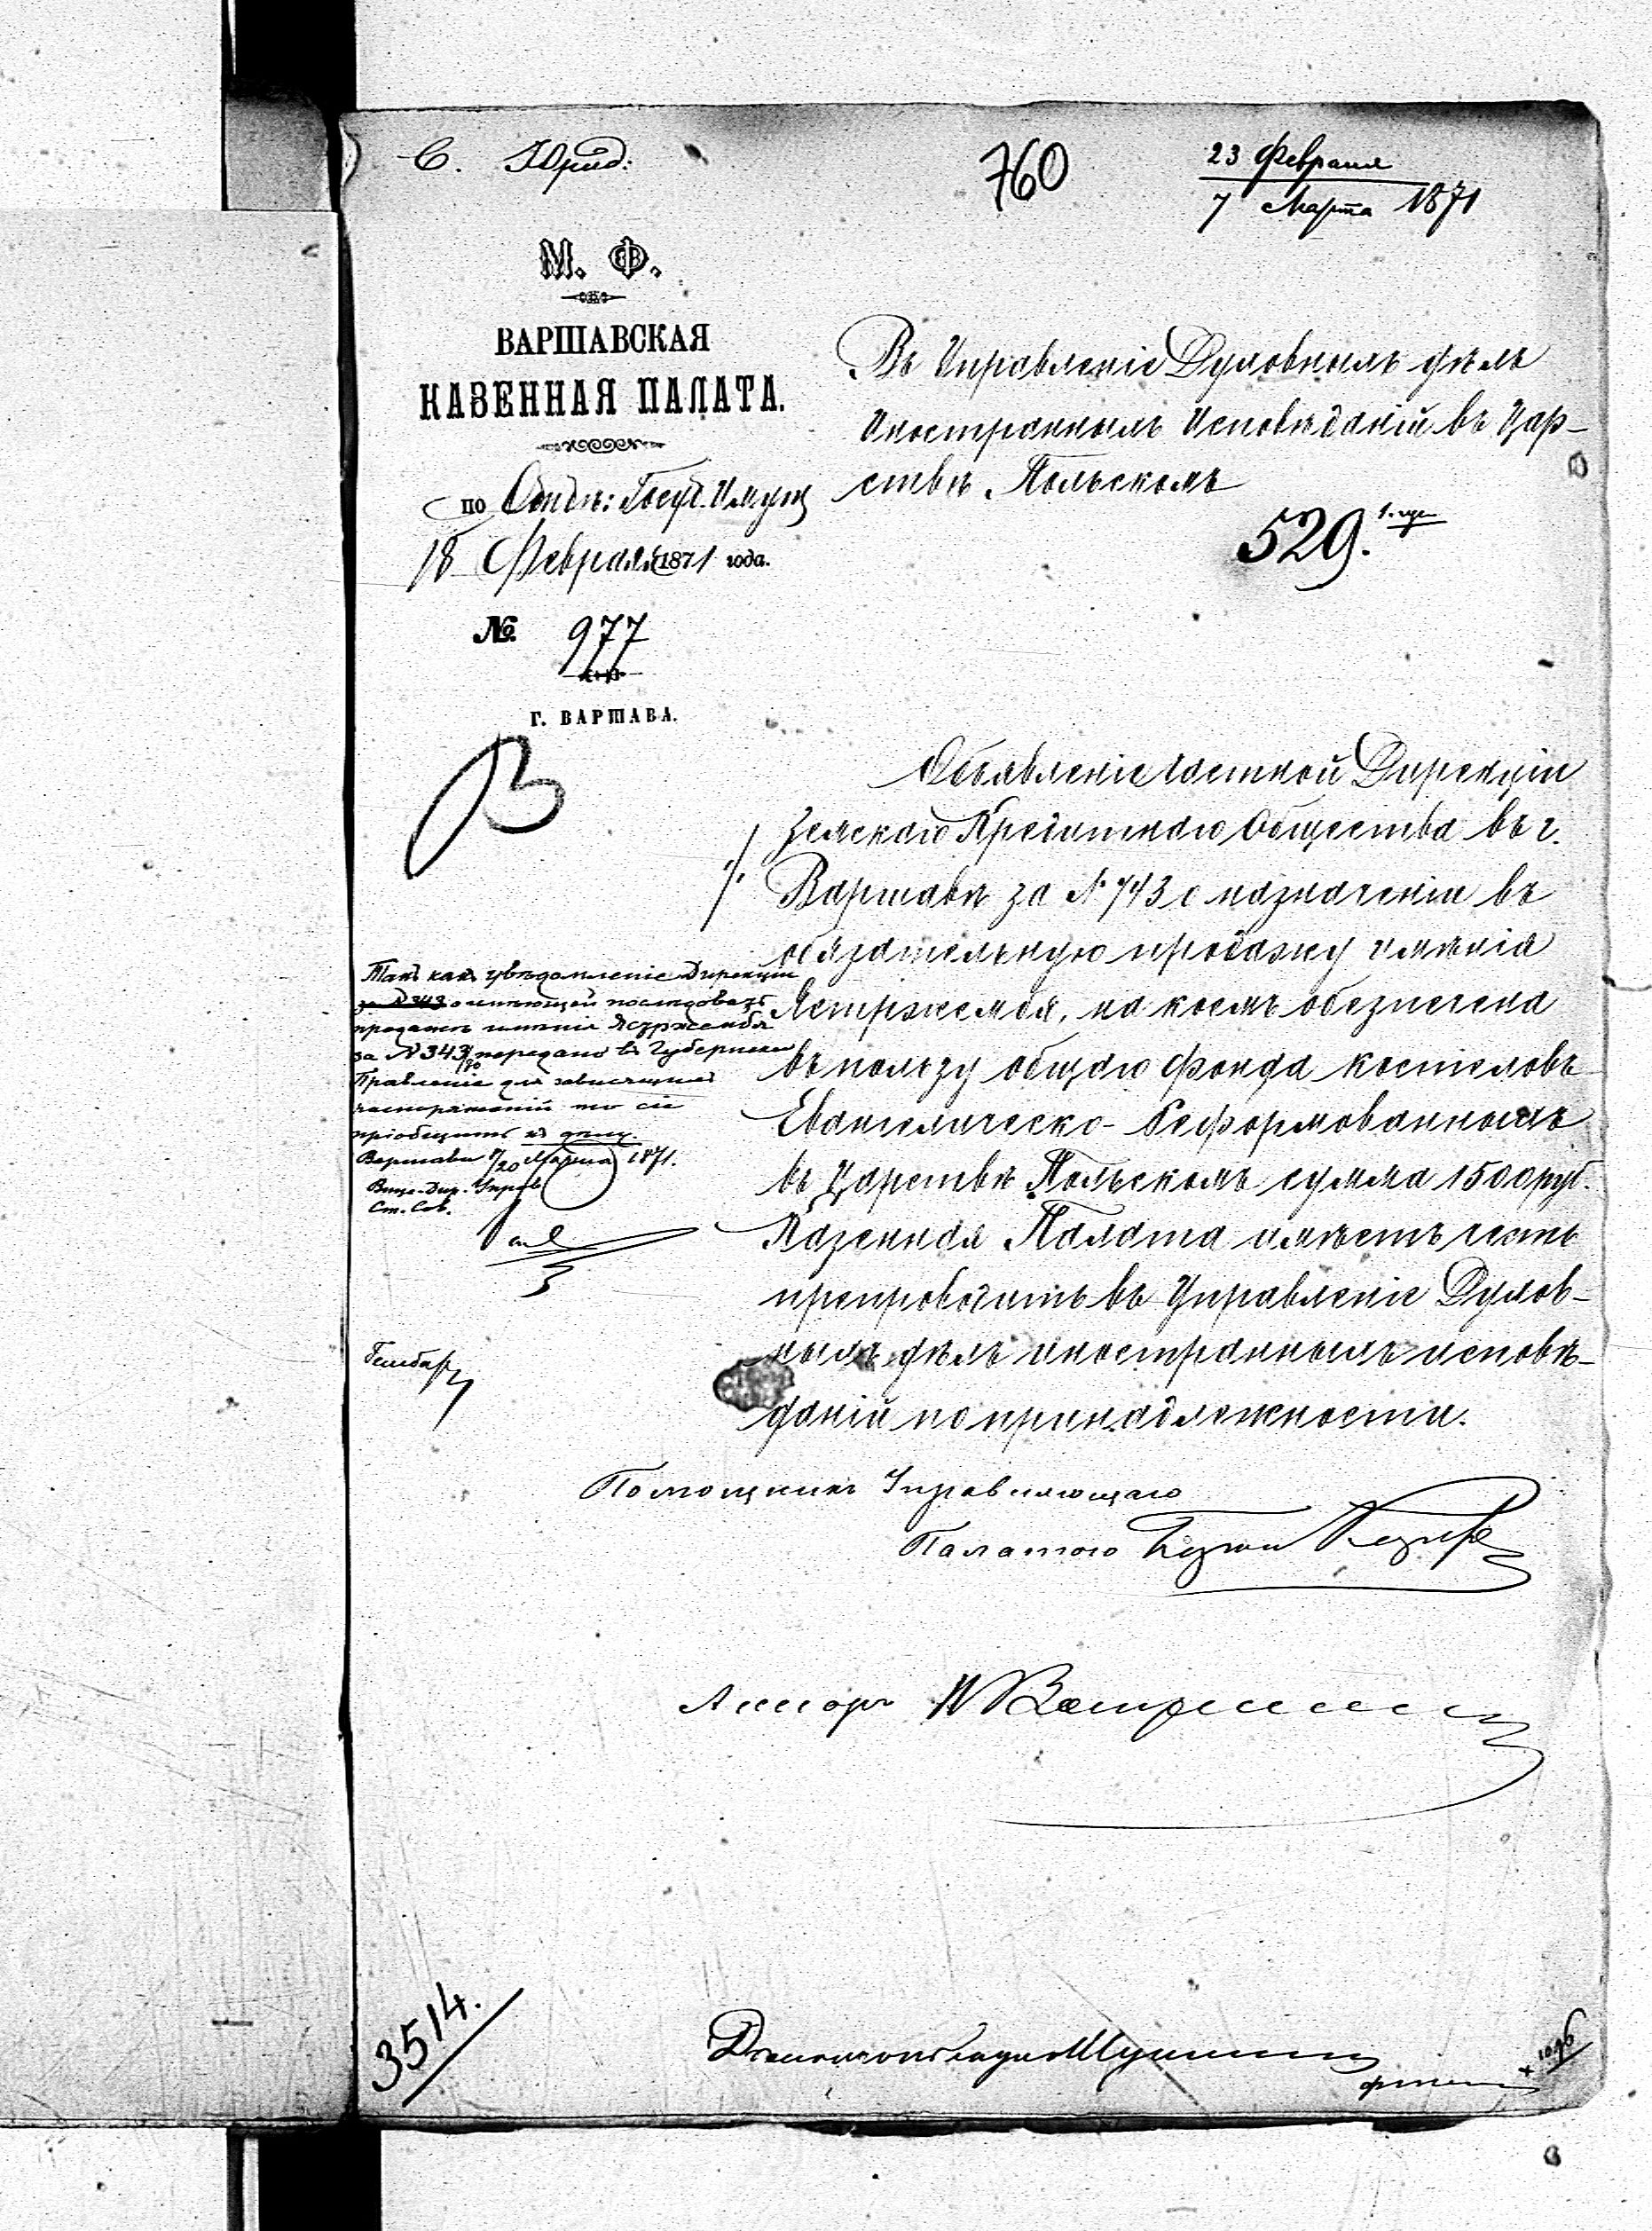 С. Юрид:
760
23 Февраля
7 Марта 1871
М. Ф.
ВАРШАВСКАЯ
КАЗЕННАЯ ПАЛАТА.
по Отдѣ: Госуд. Имущ
18 Февраля 1871 года.
№ 977
Г. ВАРШАВА.
Въ Управленіе Духовныхъ дѣлъ
Иностранныхъ Исповѣданій въ Цар-
ствѣ Польскомъ
529.
Объявленіе Частной Дирекціи
Земскаго Кредитнаго Общества въ г.
Варшавѣ за № 743 о назначеніи въ
обязательную продажу имѣнія
Ястржембя, на коемъ обезпечена
въ пользу общаго фонда костеловъ
Евангелическо-Реформованныхъ
въ Царствѣ Польскомъ сумма 1500 руб.
Казенная Палата имѣетъ честь
препроводить въ Управленіе Духов-
ныхъ дѣлъ иностранныхъ исповѣ-
даній по принадлежности.
Такъ какъ увѣдомленіе Дирекціи
за № 343 о имѣющей послѣдовать
продажѣ имѣнія Ястржембя
за № 343 передано въ Губернское
Правленіе для зависящихъ
распоряженій то сіе
пріобщить къ дѣлу.
Варшава 8/20 Марта 1871.
Вице-Дир. Управ
Ст. Сов.
Помощникъ Управляющаго
Палатою
Ассесоръ
3514.
Дѣлопроизводитель